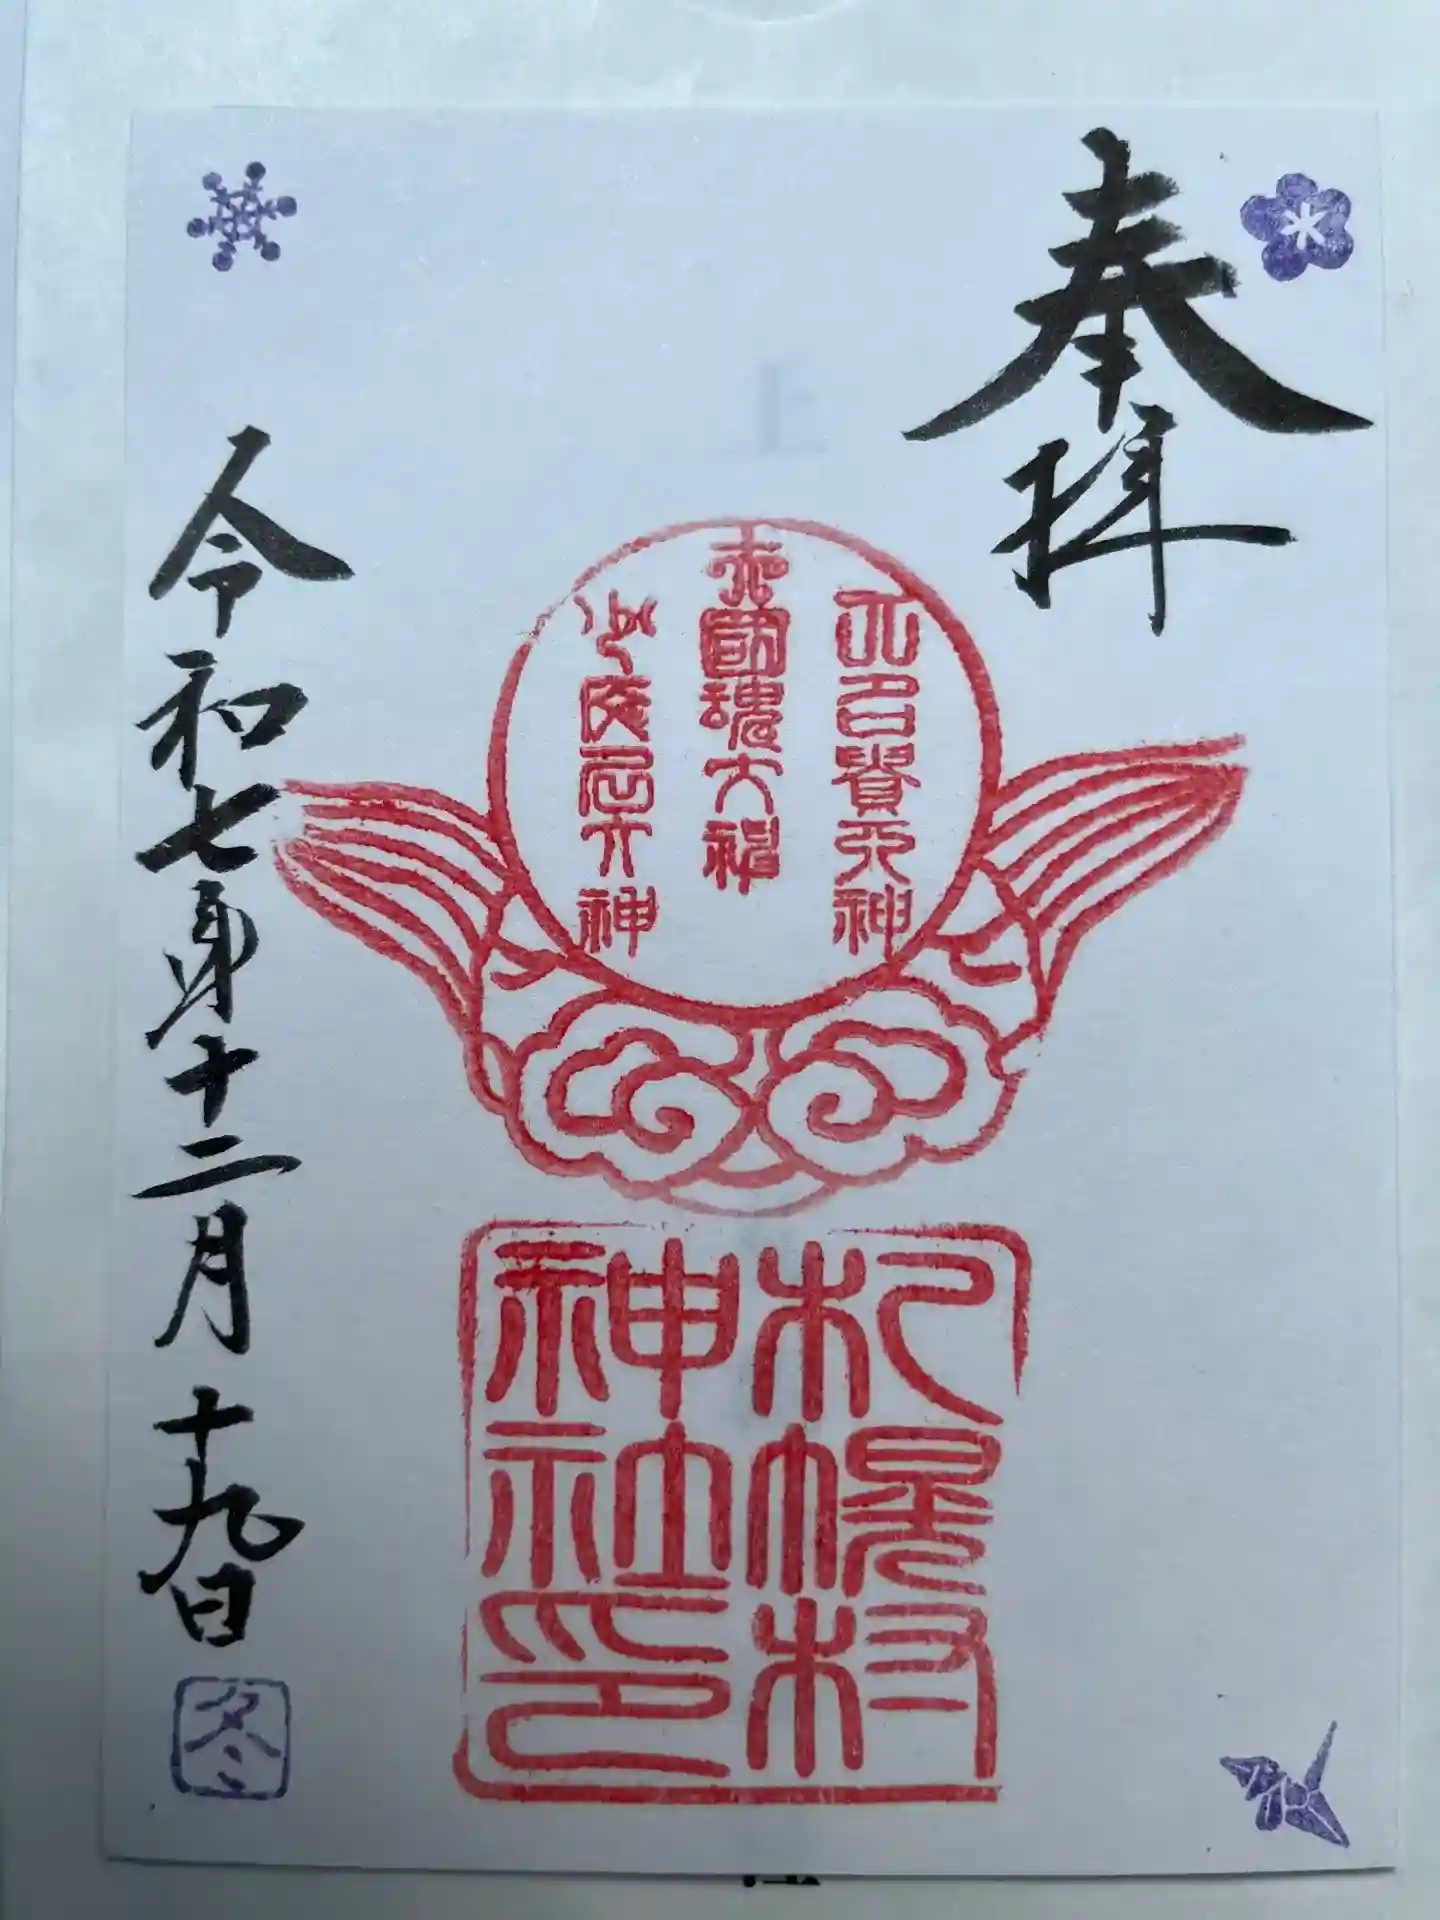 奉拝
上
大名貴大神
大國魂大神
少彦名大神
札幌村
神社印
令和七年十二月十九日
冬